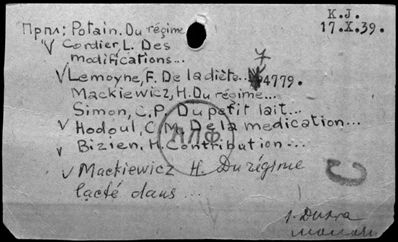 Прпл: Potain. Du régime
К.J.
17.X.39.
V Cordier, L. Des
modifications...
V Lemoyne, F. De la diète... 4779.
Mackiewicz, H. Du régime...
Simon, C.P. Du petit lait...
V Hodoul, C.M. De la medication...
V Bizien, H. Contribution...
V Mackiewicz H. Du régime
lacté dans...